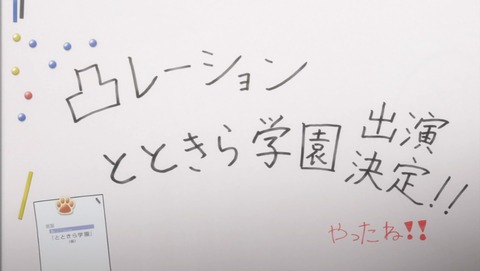 凸レーション
とときら学園 出演決定!!
やったね!!
『とときら学園』